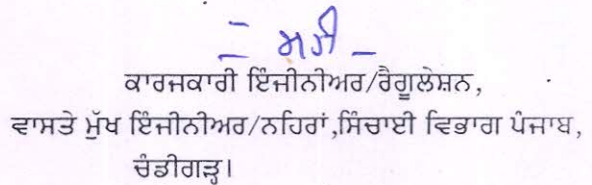 – ਸਹੀ –
ਕਾਰਜਕਾਰੀ ਇੰਜੀਨੀਅਰ/ਰੈਗੂਲੇਸ਼ਨ,
ਵਾਸਤੇ ਮੁੱਖ ਇੰਜੀਨੀਅਰ/ਨਹਿਰਾਂ,ਸਿੰਚਾਈ ਵਿਭਾਗ ਪੰਜਾਬ,
ਚੰਡੀਗੜ੍ਹ।